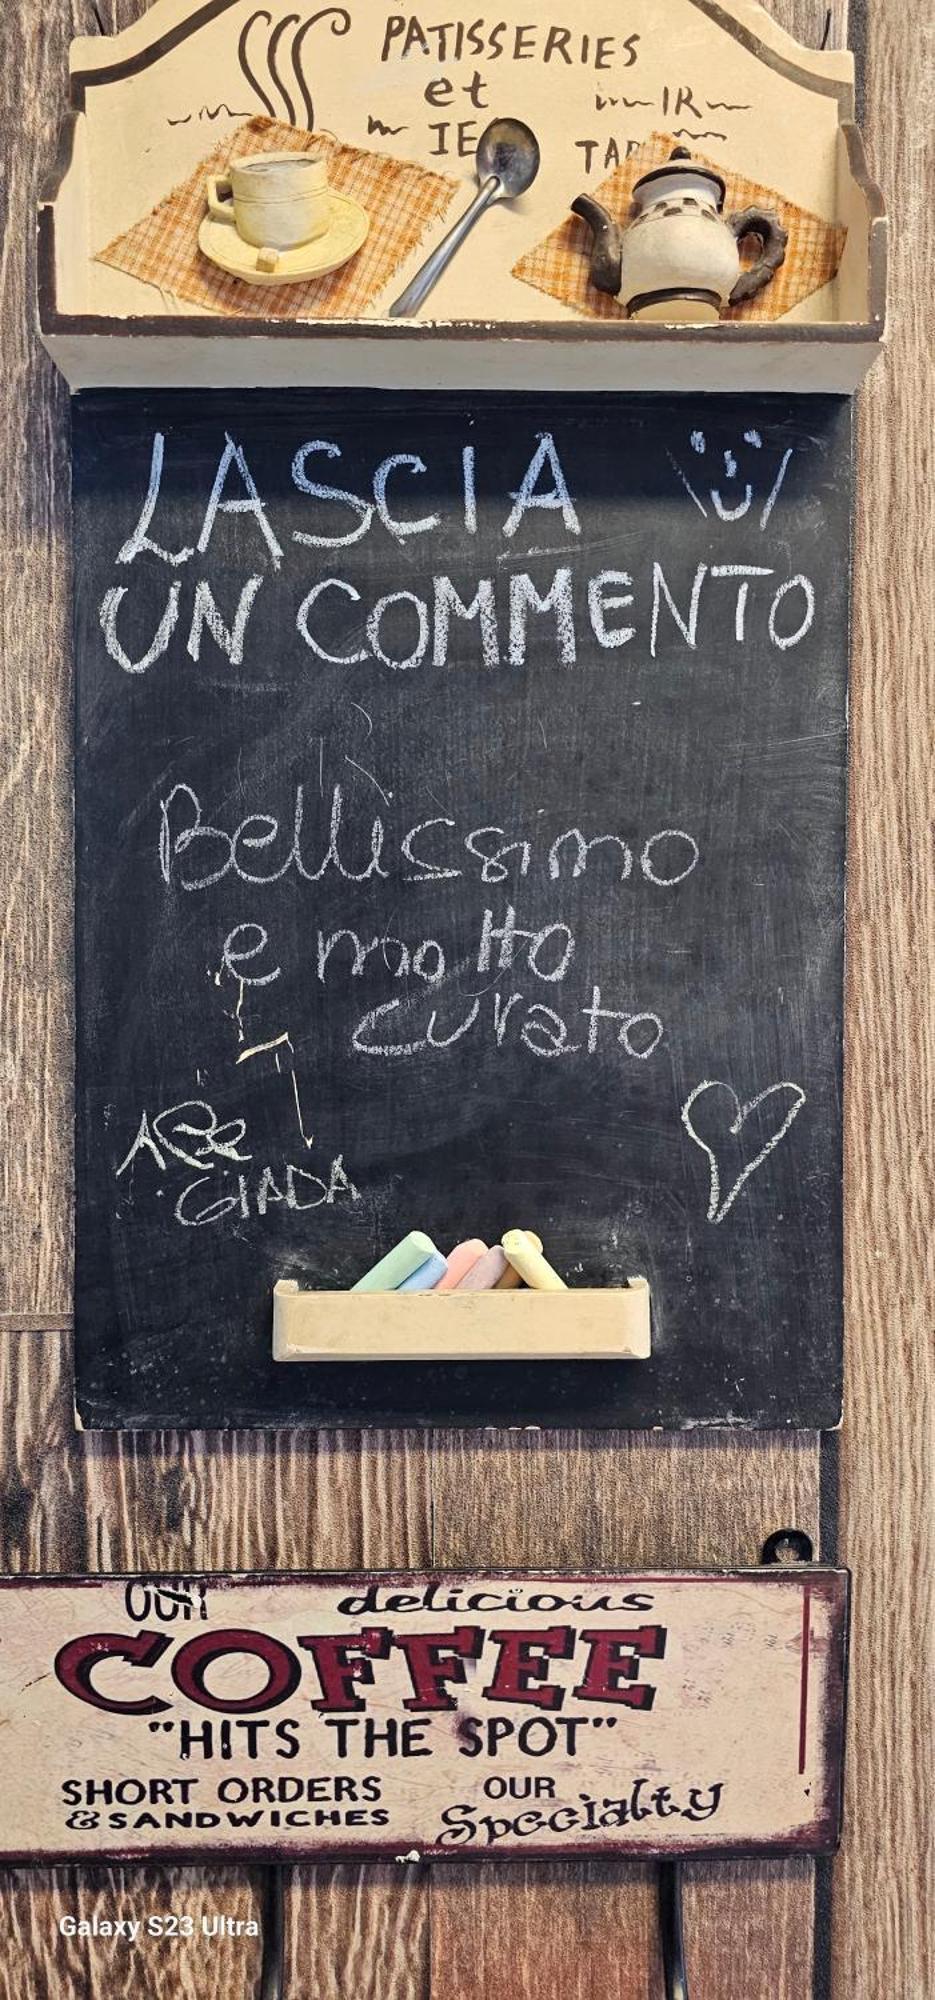 PATISSERIES
et
IR
IE
LASCIA
UN COMMENTO
Bellissimo
e molto
curato
GIADA
OUR delicious
COFFEE
"HITS THE SPOT"
SHORT ORDERS
& SANDWICHES
OUR
Specialty
Galaxy S23 Ultra